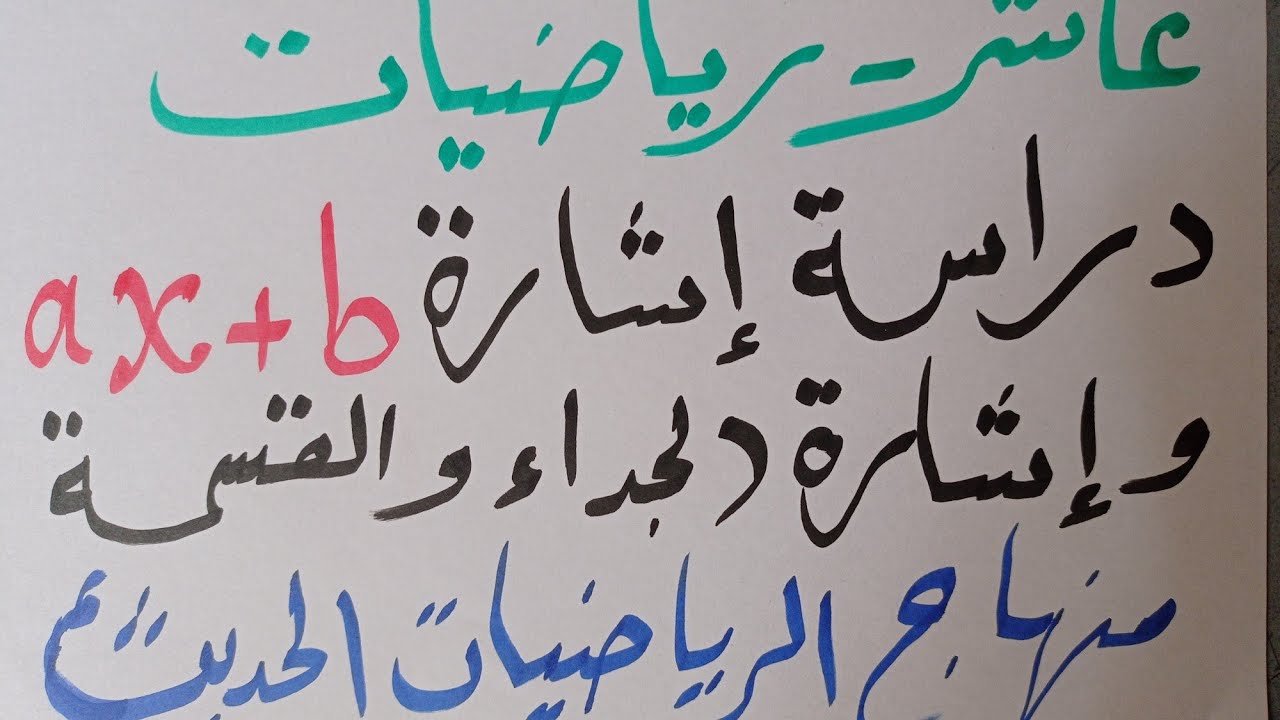 عاشر - رياضيات
دراسة إشارة ax+b
وإشارة الجداء والقسمة
منهاج الرياضيات الحديث